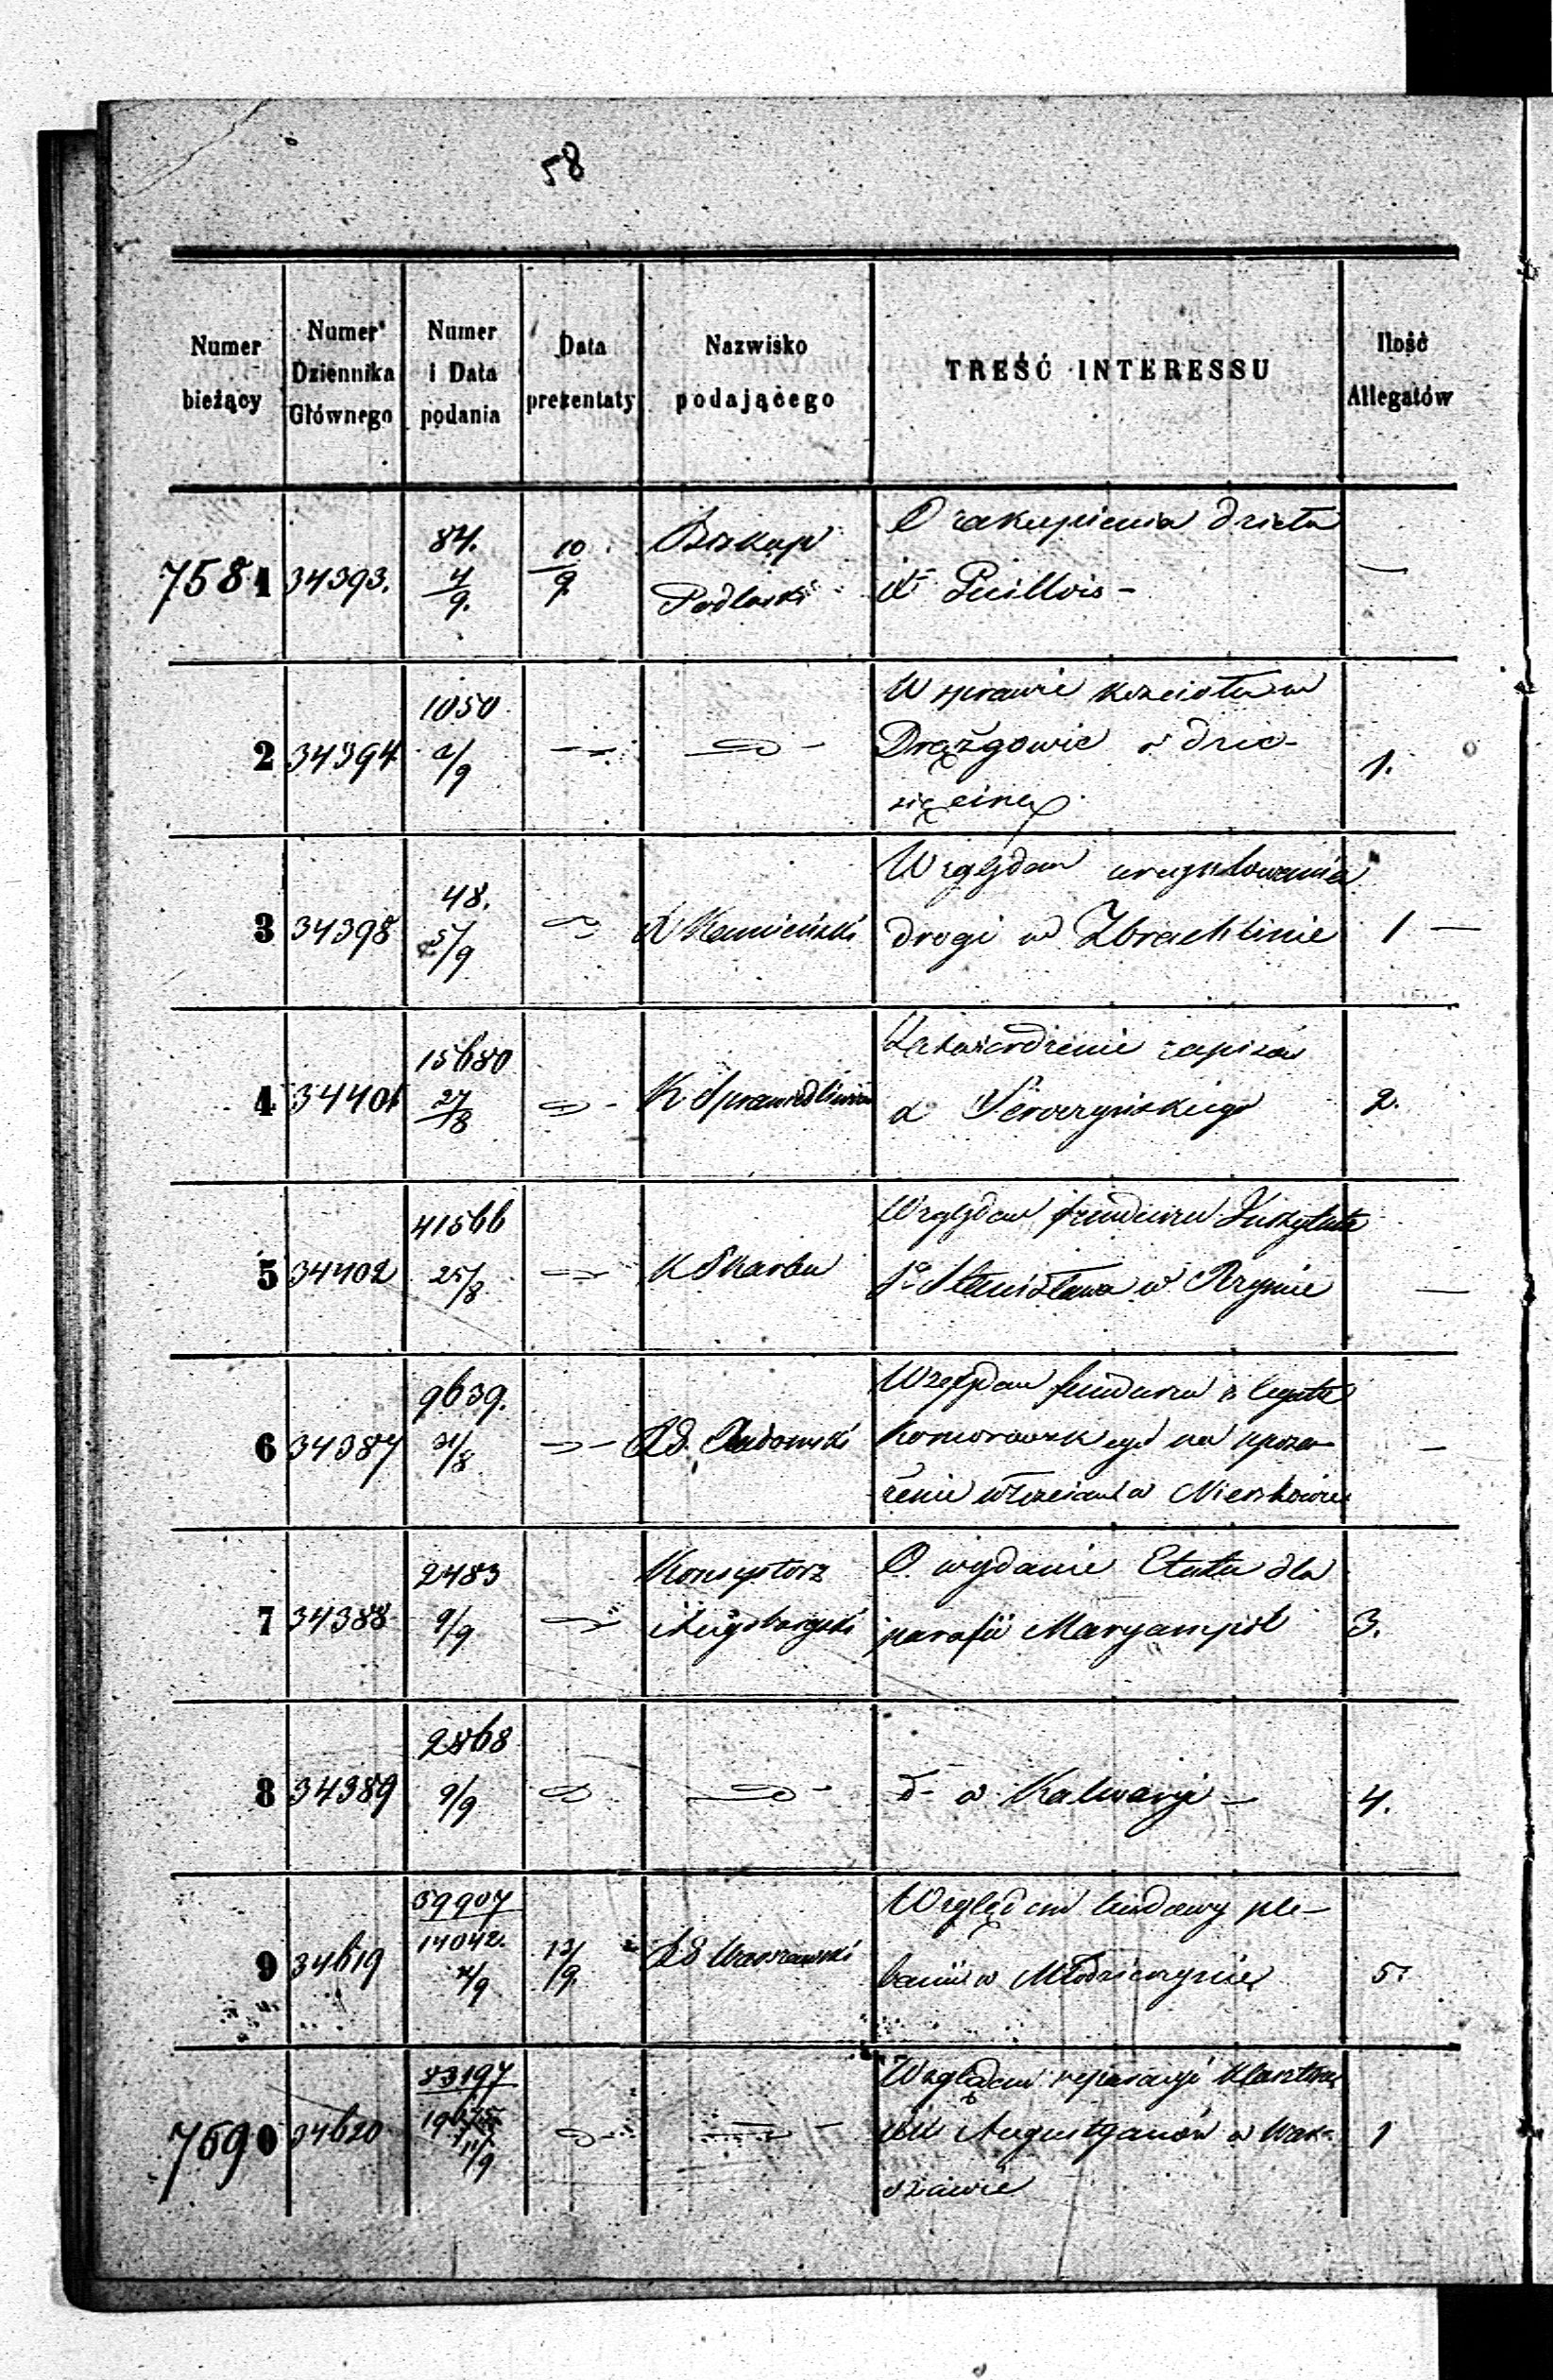 58
Numer bieżący | Numer Dziennika Głównego | Numer i Data podania | Data prezentaty | Nazwisko podającego | TREŚĆ INTERESSU | Ilość Allegatów
7581 | 34393. | 84. 4/9. | 10/9. | Biskup Podlaski | O zakupienia dzieła
X Guillois - | —
2 | 34394 | 1050 2/9 | — | — | W sprawie kościoła w
Drążgowie o dzie-
sięcinę. | 1.
3 | 34398 | 48. 5/9 | — | X Kamieński | Względem uregulowania
drogi w Zbrachlinie | 1 —
4 | 34401 | 15680 27/8 | — | K Sprawiedliwości | Zatwierdzenie zapisów
X Seroczyńskiego | 2.
5 | 34402 | 41566 25/8 | — | K Skarbu | Względem funduszu Instytutu
Sgo Stanisława w Rzymie | —
6 | 34387 | 9639. 31/8 | — | RG. Radomski | Względem funduszu z legatu
Komorowskiego na
włościan w | —
7 | 34388 | 2483 9/9 | — | Konsystorz Augsburgski | O wydanie Etatu dla
parafii Maryampol | 3.
8 | 34389 | 2468 9/9 | — | — | d- w Kalwaryi — | 4.
9 | 34619 | 39907 14042. 2/9 | 12/9. | RG Warszawski | Względem budowy ple-
banii w Młodzieszynie | 5.
7590 | 34620 | 83197 11/9 | — | — | Względem reparacyi Klasztoru
XX Augustyanów w War-
szawie | 1